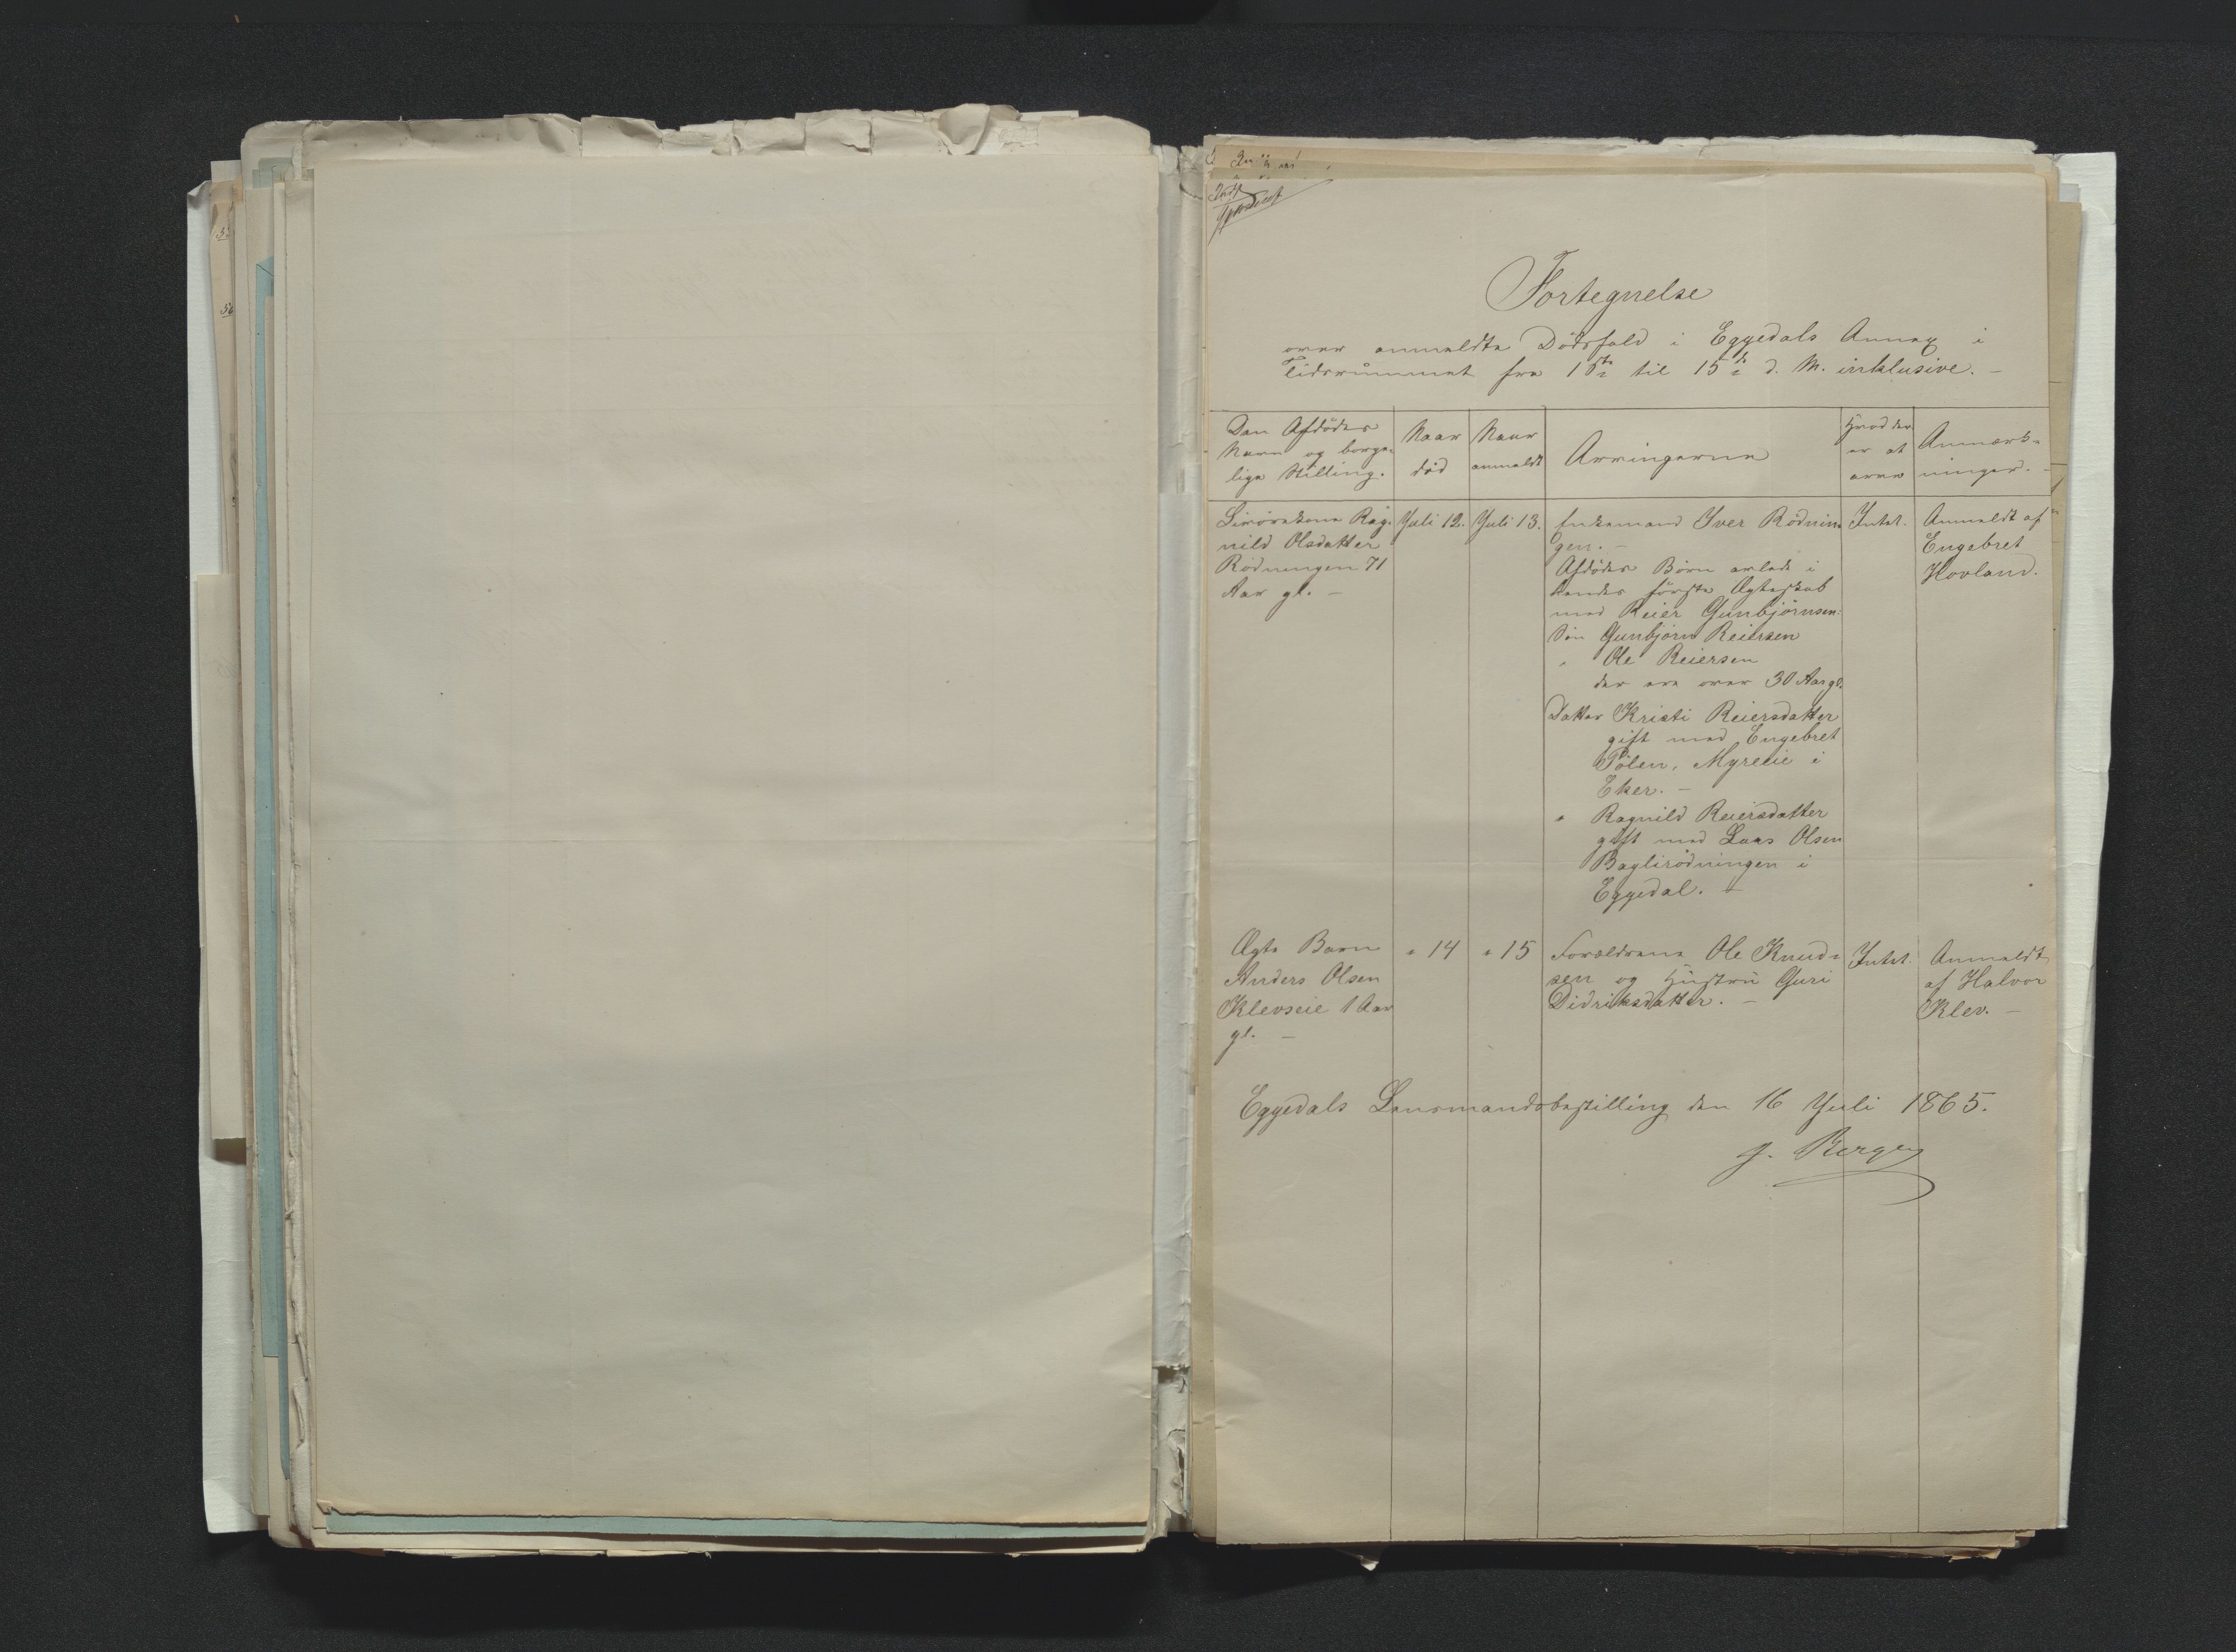 Fortegnelse
over anmeldte Dödsfald i Eggedals Annex i
Tidsrummet fra 1ste til 15de d. M. inklusive. –
Den Afdödes
Navn og borger
lige Stilling.
Naar
död
Naar
anmeldt
Arvingerne
Hvad der
er at
arve
Anmærk-
ninger. –
Ragnild Olsdatter
Rödningen 71
Aar gl. –
Juli 12.
Juli 13.
Enkemand Iver Rödnin-
gen. –
Afdödes Börn avlede i
hendes förste Ægteskab
med Reier Gunbjörnsen:
Sön Gunbjörn Reiersen
" Ole Reiersen
der ere over 30 Aar gl.
Datter Kristi Reiersdatter
gift med Engebret
Pölen, Myreeie i
Eker. –
" Ragnild Reiersdatter
gift med Lars Olsen
Baglirödningen i
Eggedal. –
Intet.
Anmeldt af
Engebret
Hovland.
Ægte Barn
Anders Olsen
Klevseie 1 Aar
gl. –
" 14
" 15
Forældrene Ole Knud-
sen og Hustru Guri
Didriksdatter. –
Intet.
Anmeldt
af Halvor
Klev. –
Eggedals Lensmandsbestilling den 16 Juli 1865.
J. Bergen